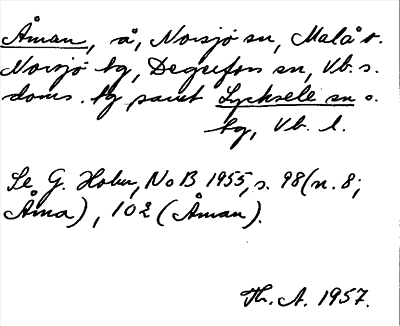 Åman, å, Norsjö sn, Malå o.
Norsjö tg, Degerfors sn, Vb. s.
doms. tg samt Lycksele sn o.
tg, Vb. l.
Se G. Holm, NoB 1955, s. 98 (n. 8;
Åma), 102 (Åman).
Th. A. 1957.